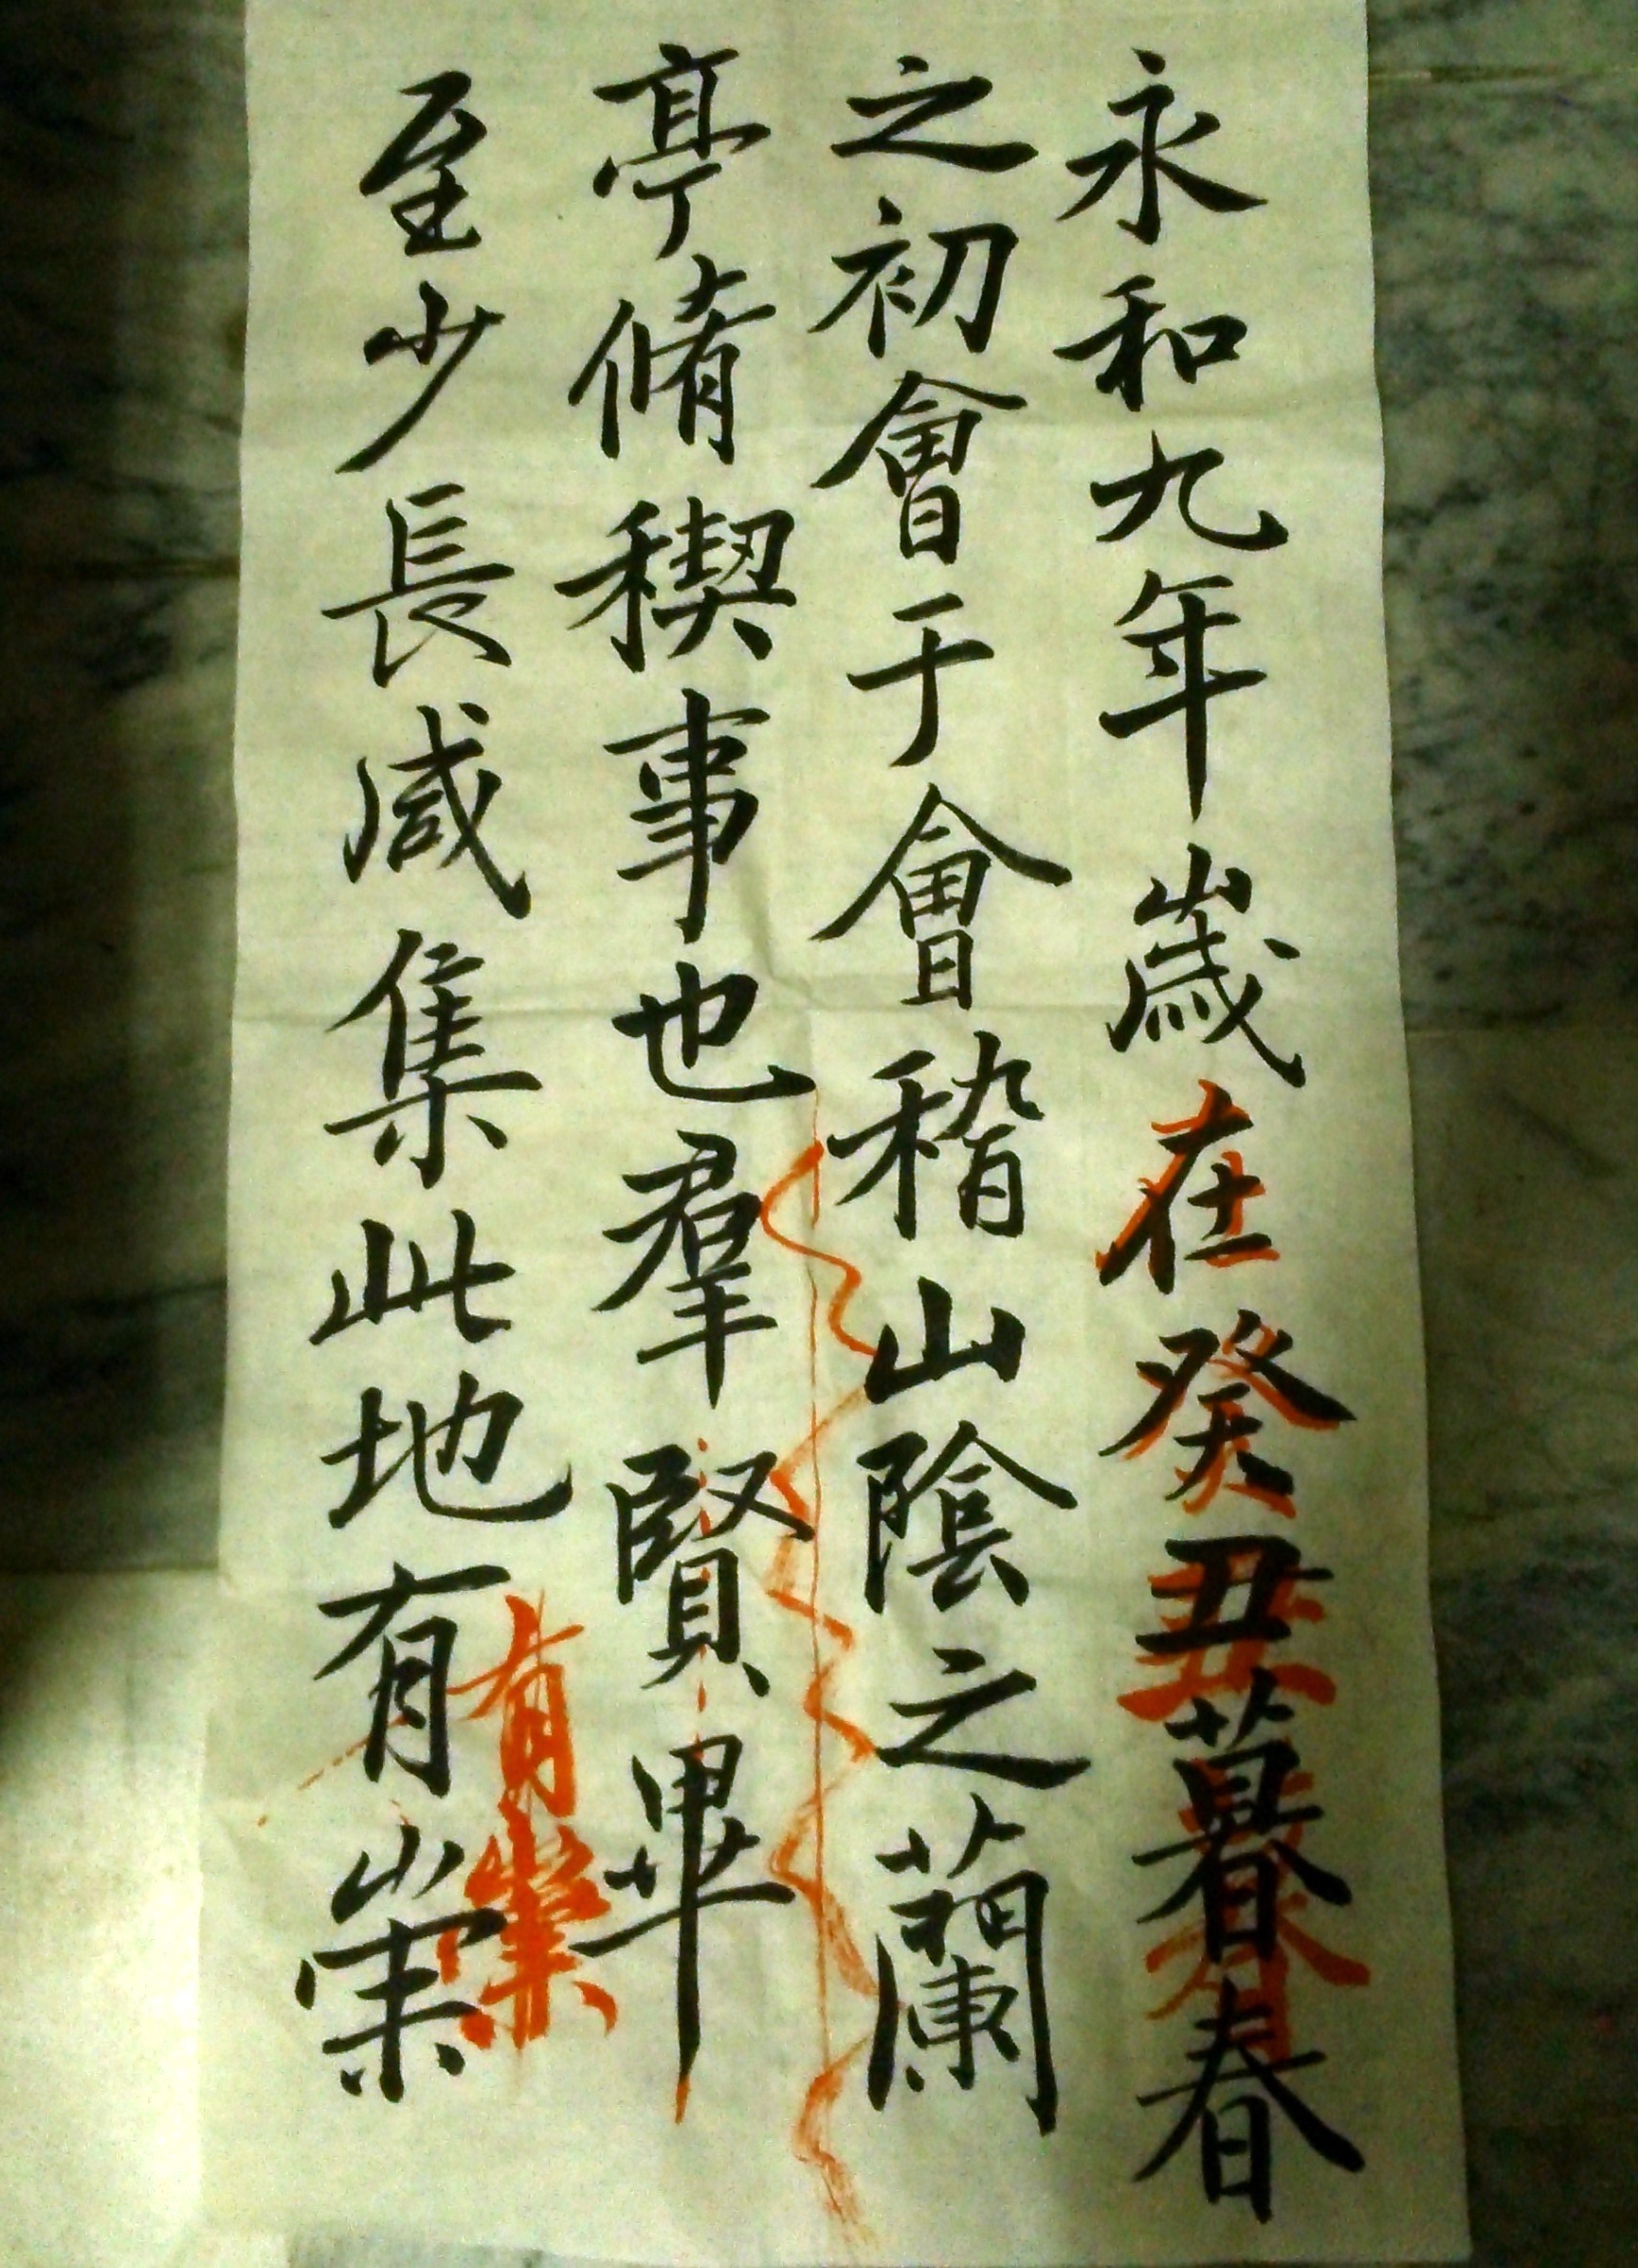 永和九年歲在癸丑暮春
之初會于會稽山陰之蘭
亭脩稧事也羣賢畢
至少長咸集此地有崇
有崇